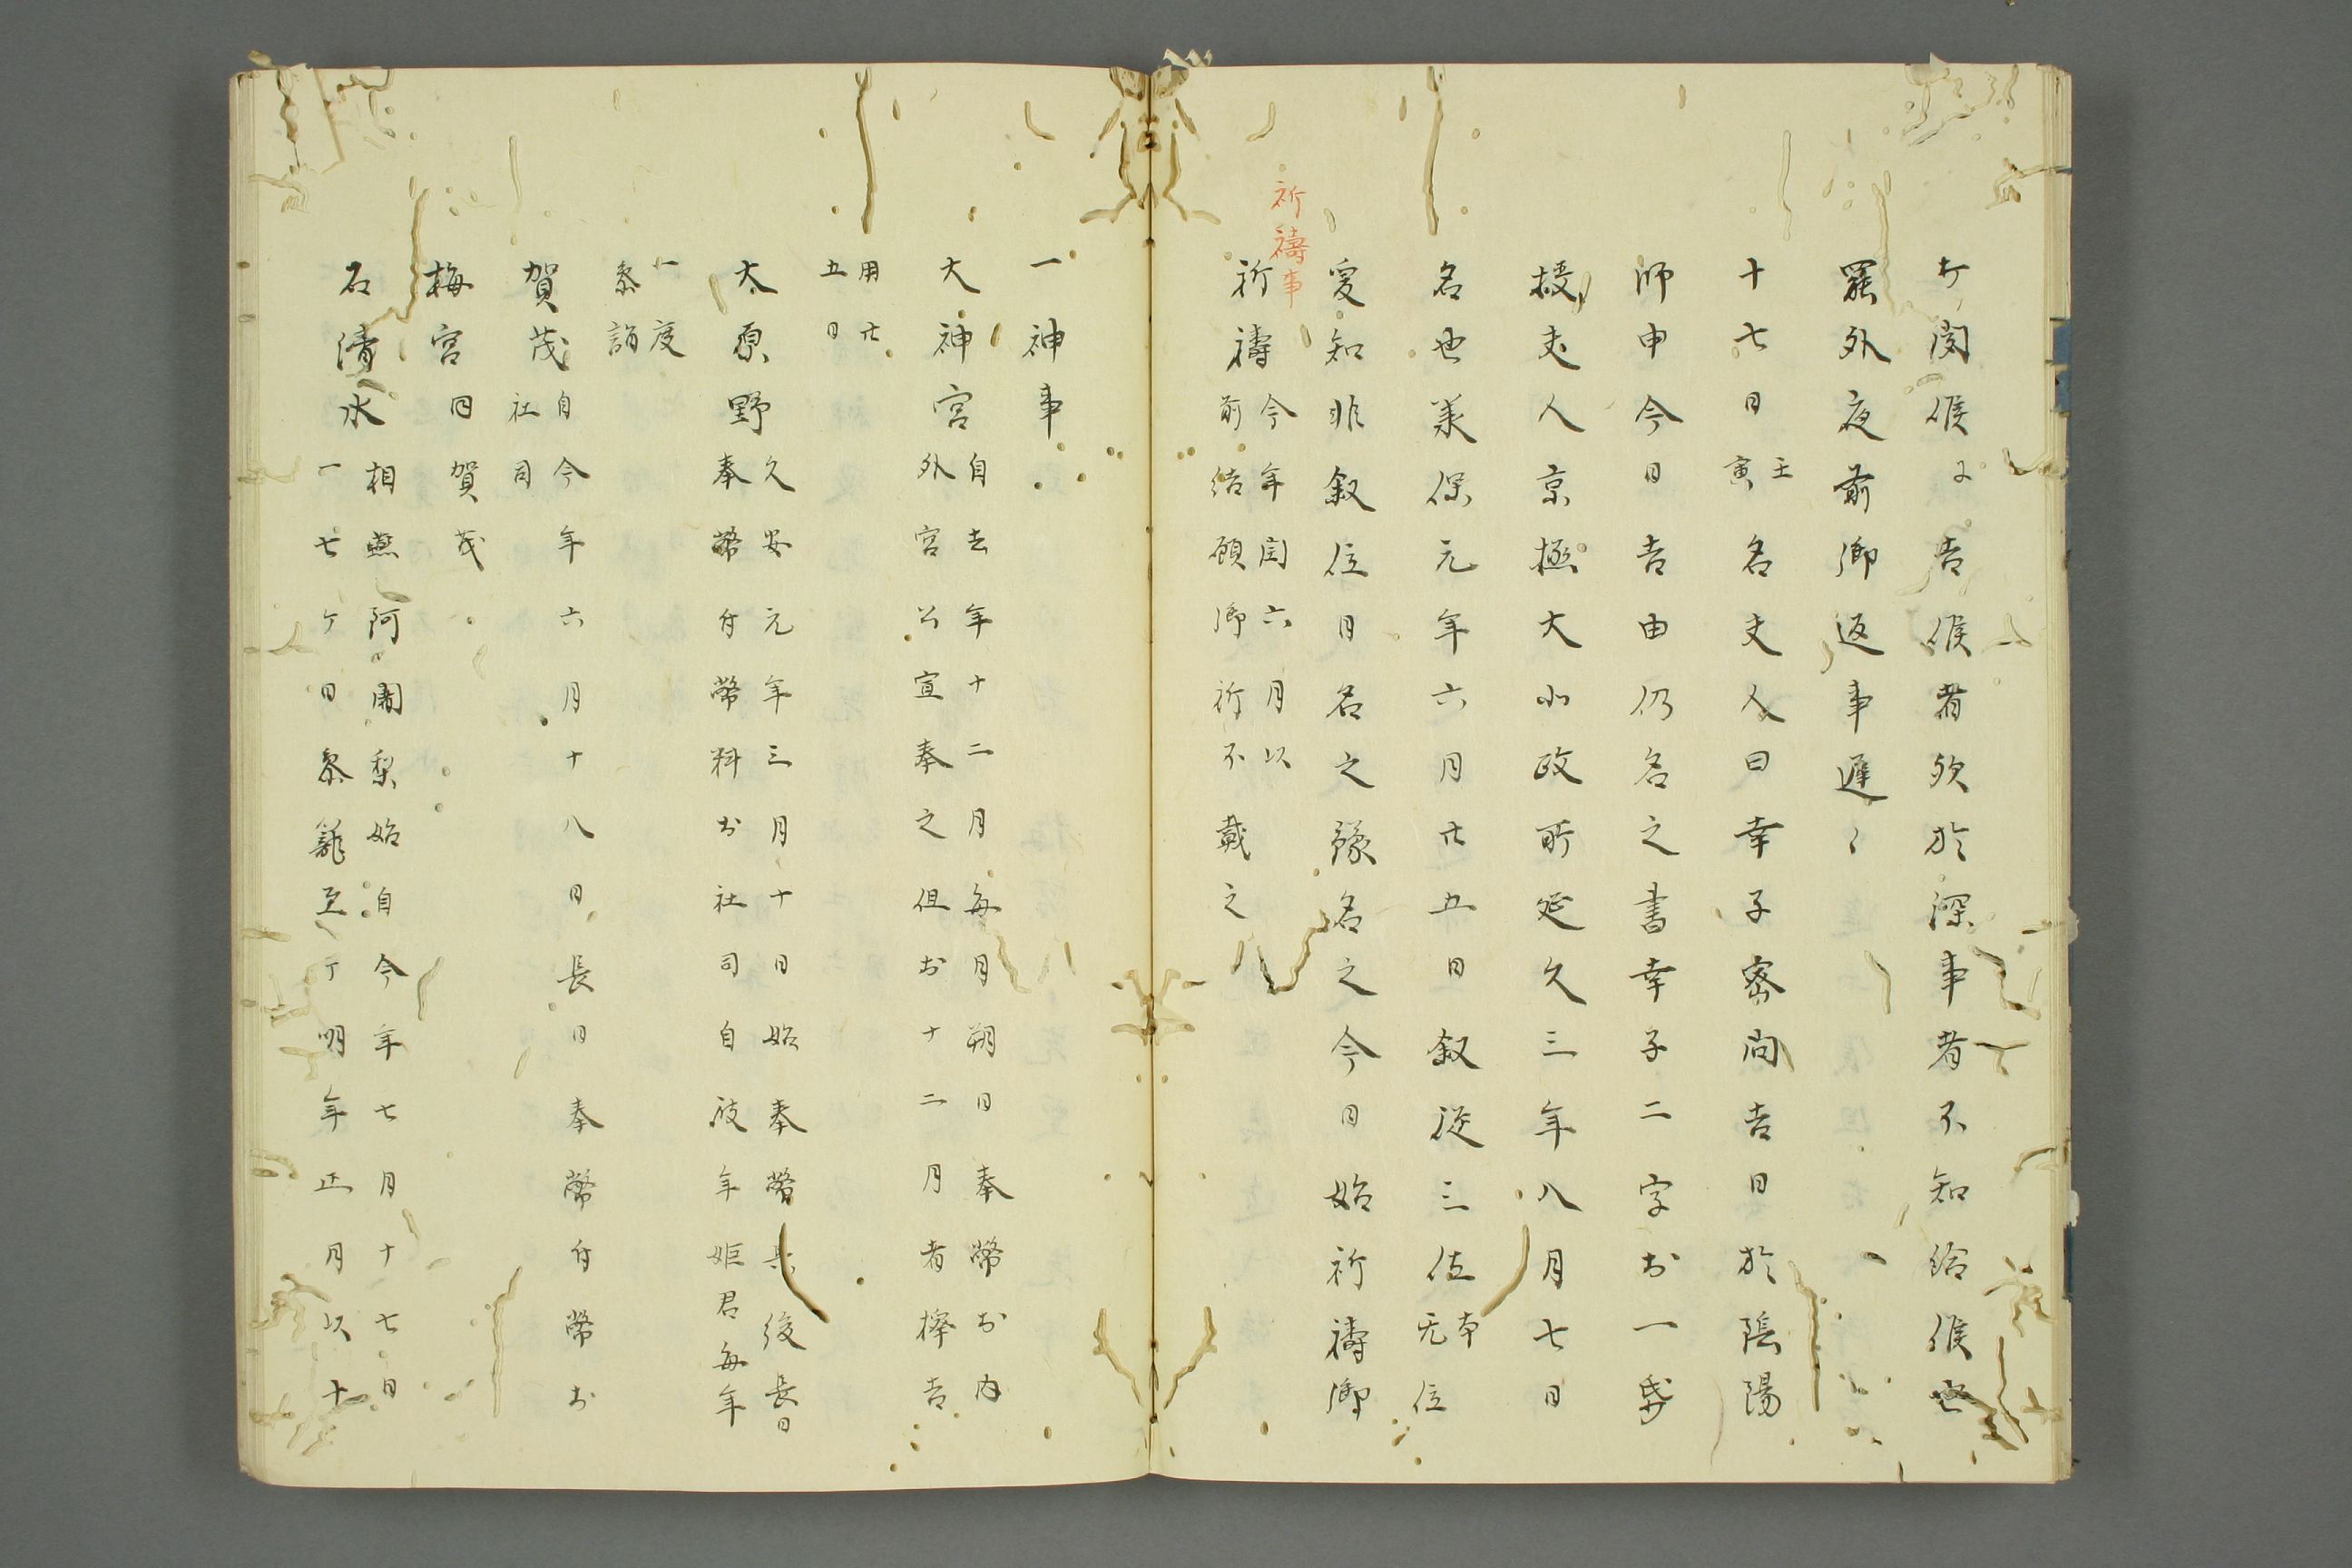 祈禱事
ヶ閑候ニ告候者欤於深事者不知給候也
羅外夜前御返事遅〻
十七日壬寅名丈人曰幸子密問吉日於陰陽
師申今日吉由仍名之書幸子二字於一帋
授丈人京極大北政所延久三年八月七日
名也美保元年六月廿五日叙従三位本无位
爰知非叙位日名之豫名之今日始祈禱御
祈禱今年閏六月以前結願御祈不載之
一神事
大神宮自去年十二月毎月朔日奉幣於内外宮公宣奉之但於十二月者擇吉
用廿五日
大原野久安元年三月十日始奉幣其後長日奉幣付幣料於社司自彼年姫君毎年
一度参詣
賀茂自今年六月十八日長日奉幣付幣於社司
梅宮同賀茂
石清水相燕阿闍梨始自今年七月十七日一七ヶ日参籠至于明年正月以十